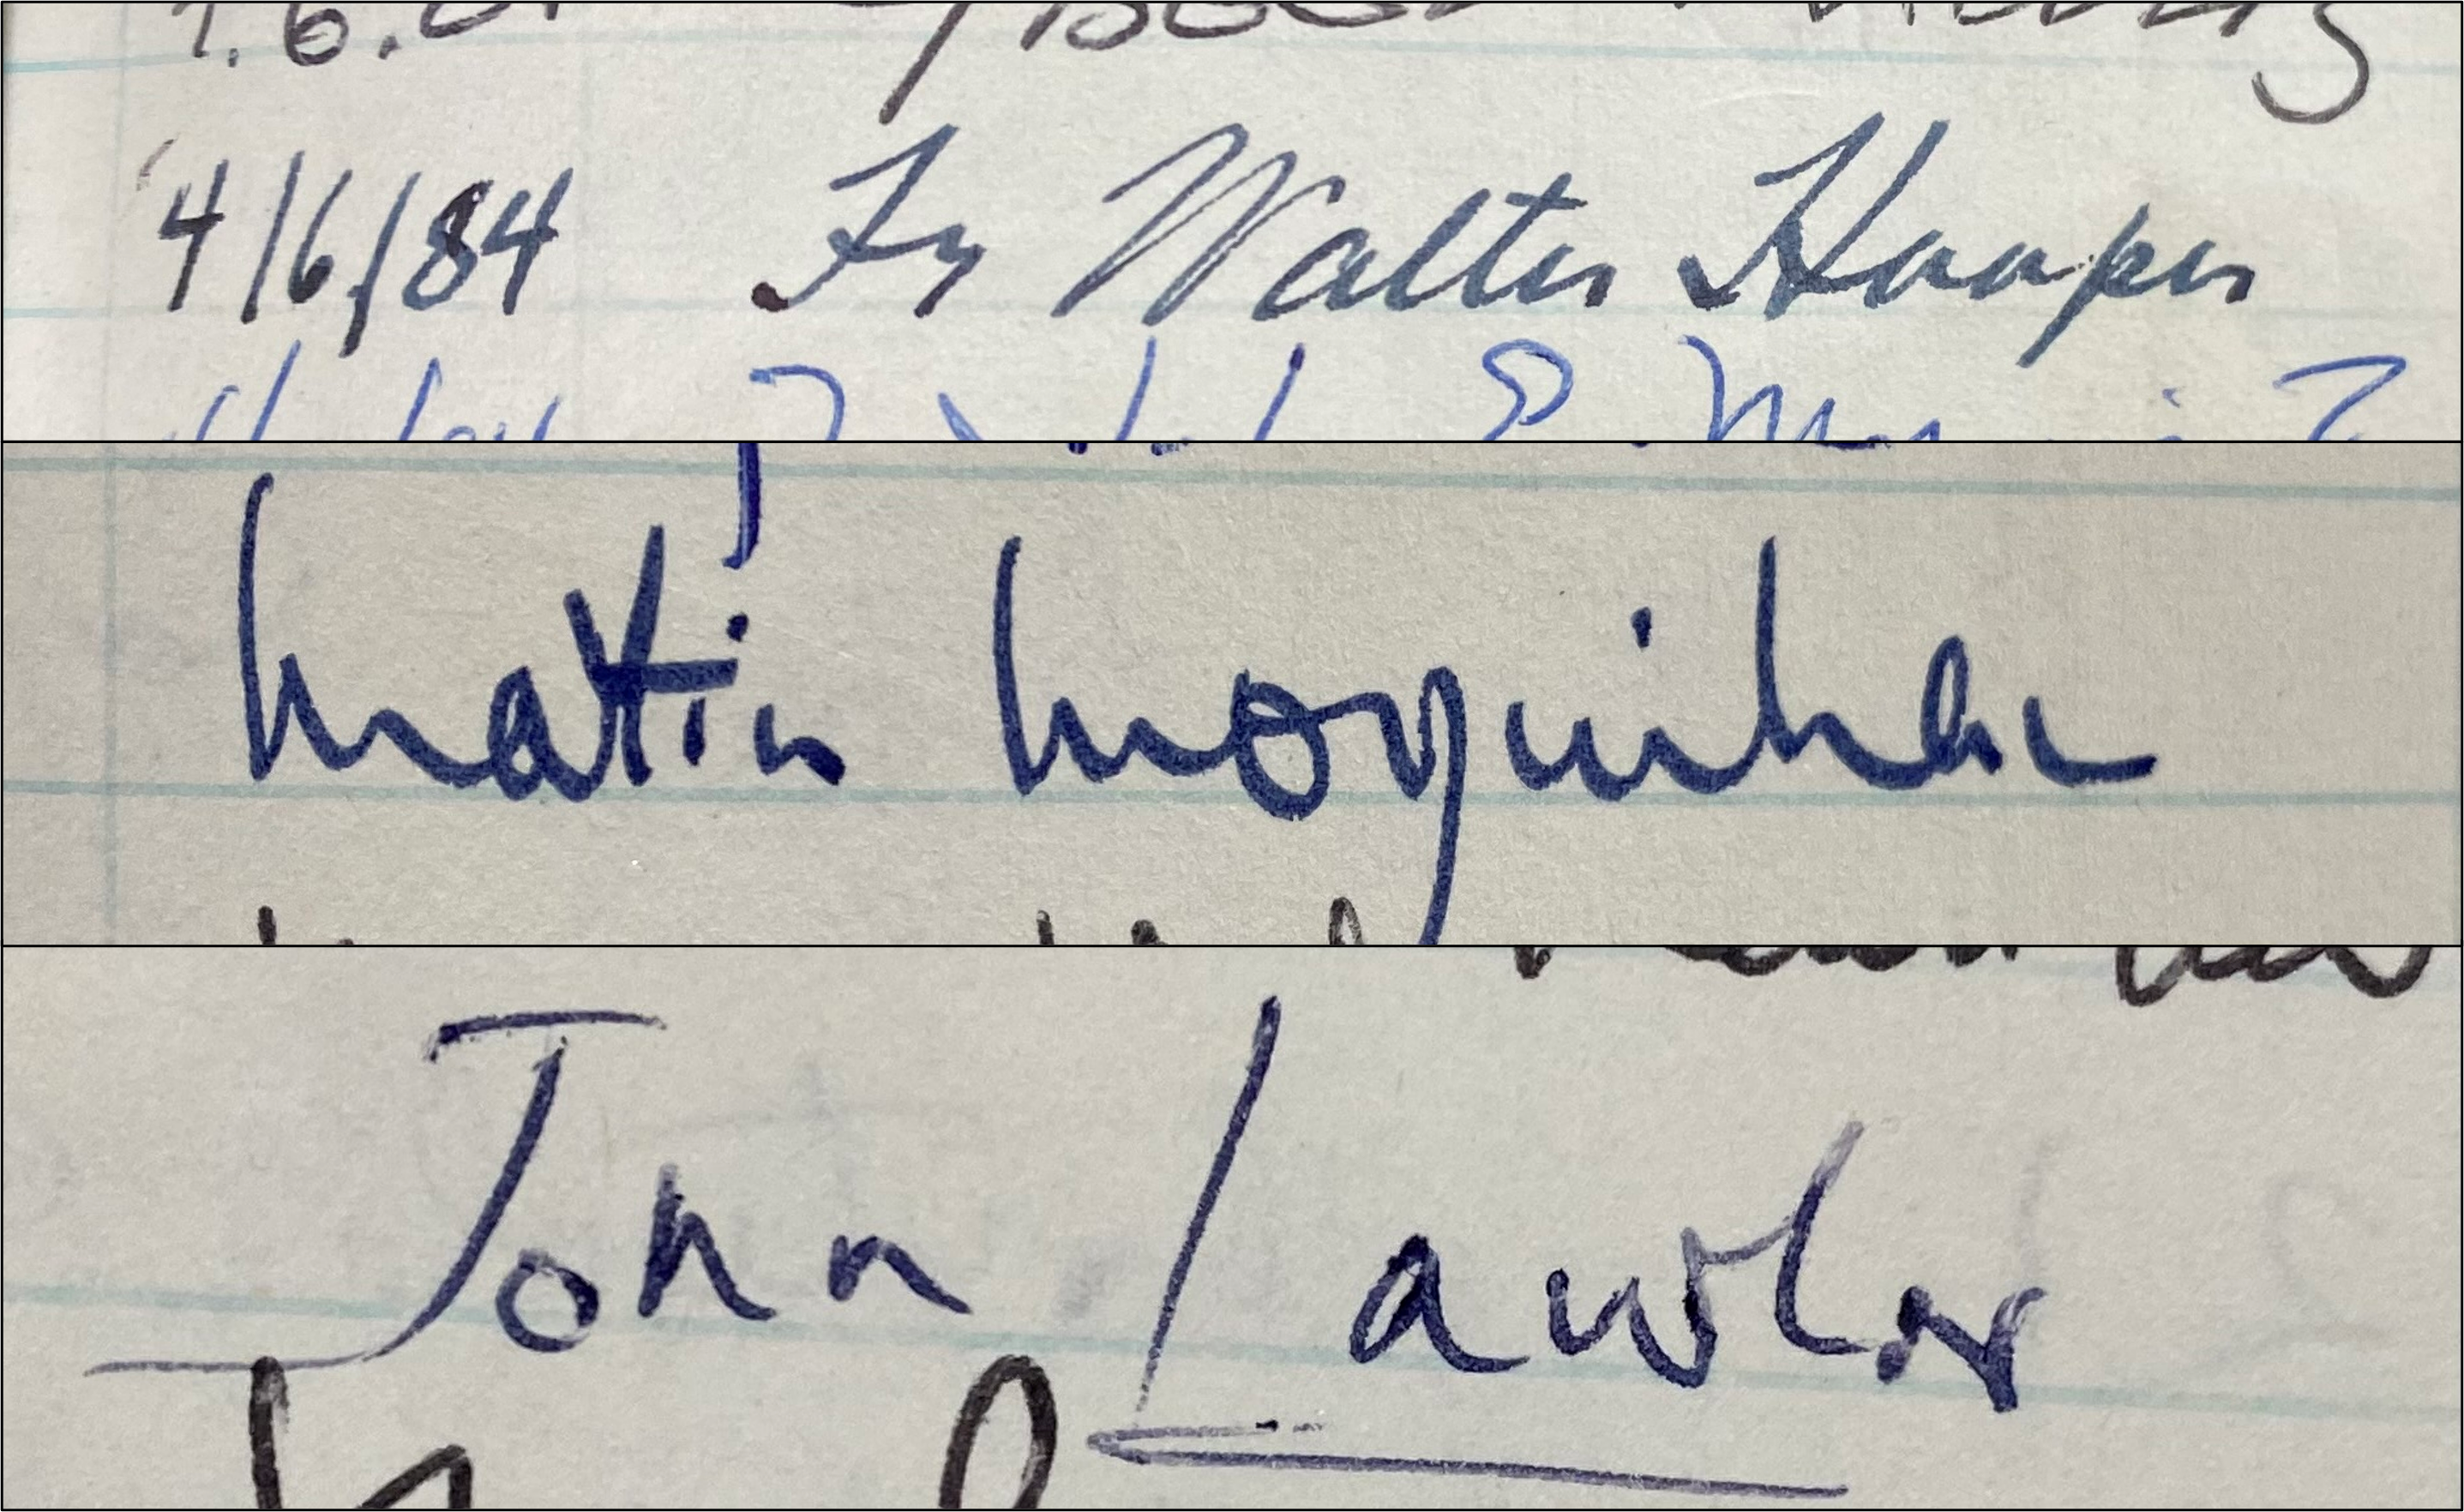 4/6/84 Fr Walter Hooper
Martin Moynihan
John Lawlor